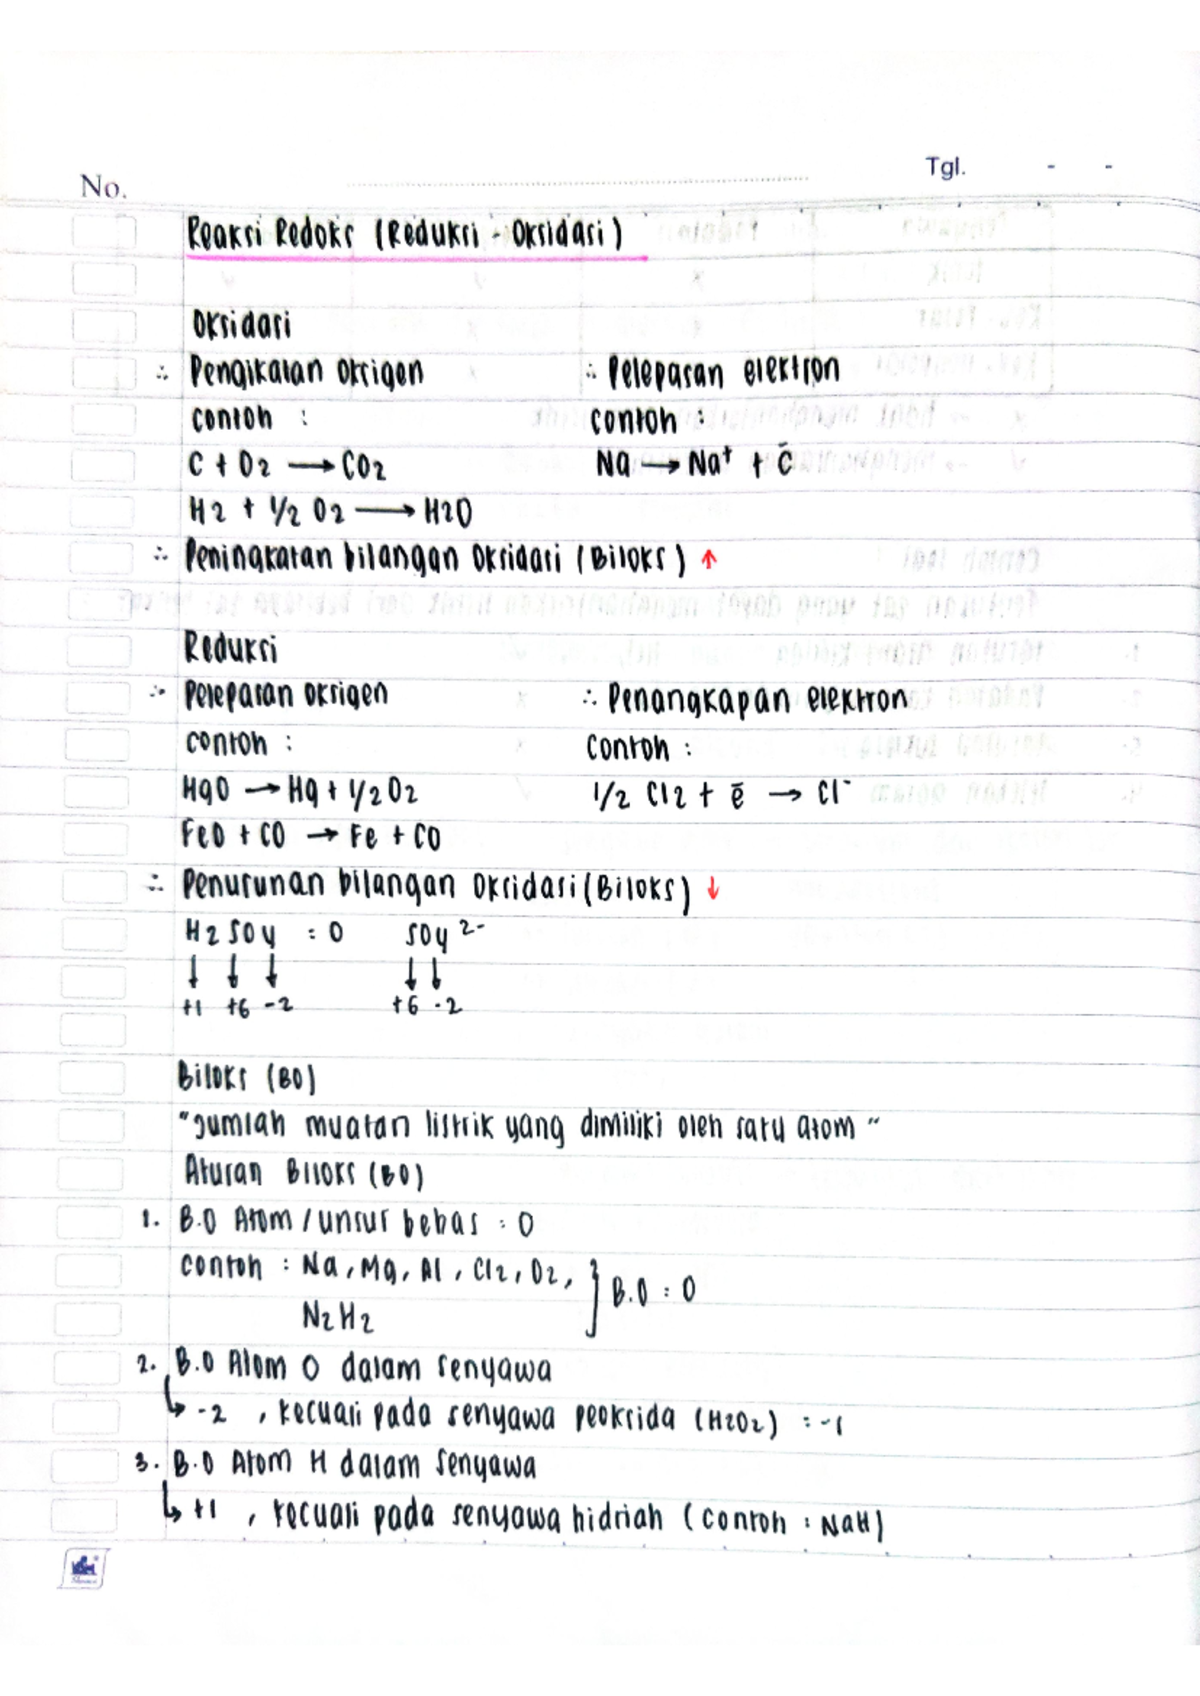 No.
Tgl. - -
Reaksi Redoks (Reduksi - Oksidasi)
Oksidasi
∴ Pengikatan Oksigen ∴ Pelepasan elektron
contoh : contoh :
C + O2 → CO2 Na → Na⁺ + ē
H2 + 1/2 O2 → H2O
∴ Peningkatan bilangan Oksidasi (Biloks) ↑
Reduksi
∴ Pelepasan oksigen ∴ Penangkapan elektron
contoh : Contoh :
HgO → Hg + 1/2 O2 1/2 Cl2 + ē → Cl⁻
FeO + CO → Fe + CO
∴ Penurunan bilangan Oksidasi (Biloks) ↓
H2SO4 = 0 SO4 2-
↓ ↓ ↓ ↓ ↓
+1 +6 -2 +6 -2
Biloks (BO)
"Jumlah muatan listrik yang dimiliki oleh satu atom"
Aturan Biloks (BO)
1. B.O Atom / unsur bebas = 0
contoh : Na, Mg, Al, Cl2, O2, } B.O = 0
N2H2
2. B.O Atom O dalam senyawa
↳ -2 , kecuali pada senyawa peoksida (H2O2) = -1
3. B.O Atom H dalam senyawa
↳ +1 , kecuali pada senyawa hidriah (contoh : NaH)